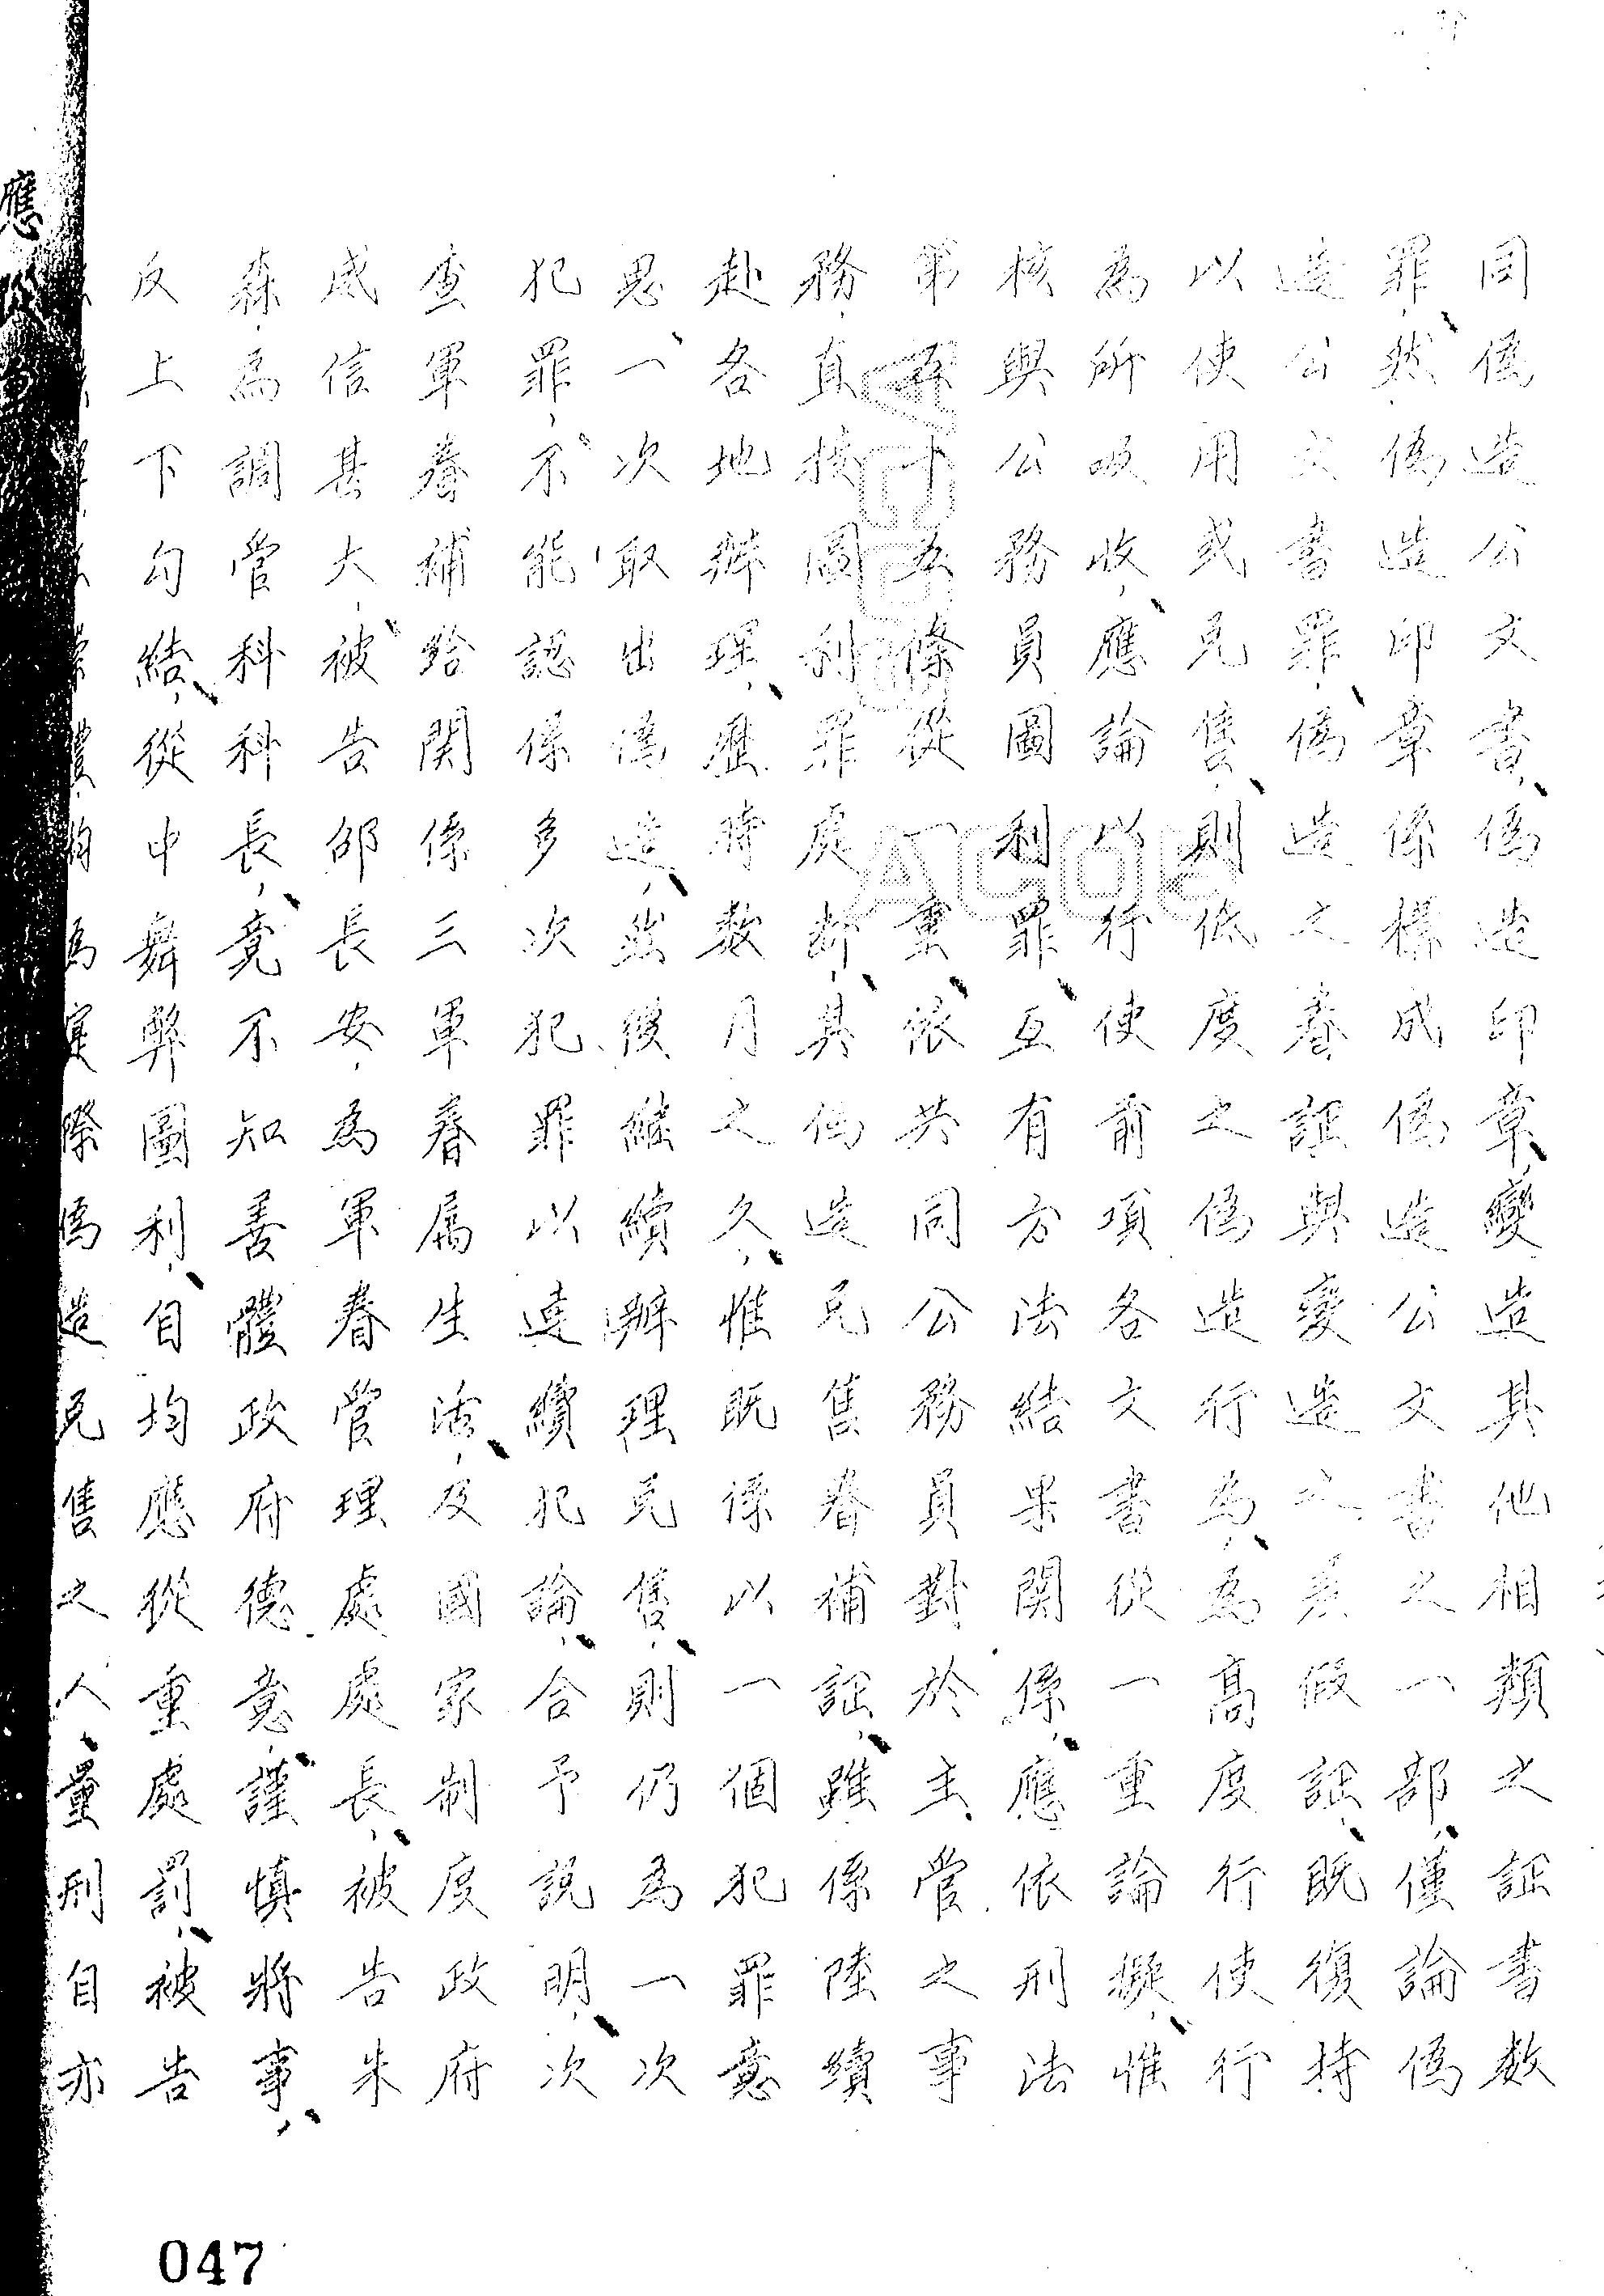 同偽造公文書、偽造印章、變造其他相類之証書数
罪、然偽造印章係構成偽造公文書之一部、僅論偽
造公文書罪、偽造之眷証與變造之眷假証、既復持
以使用或兄售、則低度之偽造行為、為高度行使行
為所吸收、應論以行使前項各文書從一重論擬、惟
核與公務員圖利罪、互有方法結果関係、應依刑法
第五十五條從一重、依共同公務員對於主管之事事
務直接圖利罪處斷、其偽造兄售眷補証、雖係陸續
赴各地辦理、歷時数月之久、惟既係以一個犯罪意
思、一次取出偽造、並後繼續辦理兄售、則仍為一次
犯罪、不能認係多次犯罪以連續犯論、合予説明、次
查軍眷補給関係三軍眷属生活、及國家制度政府
威信甚大、被告邵長安、為軍眷管理處處長、被告朱
森、為調管科科長、竟不知善體政府德意、謹慎將事、
反上下勾結、從中舞弊圖利、自均應從重處罰、被告
為實際偽造兄售之人、量刑自亦
應從
047
ACOE
ACOE